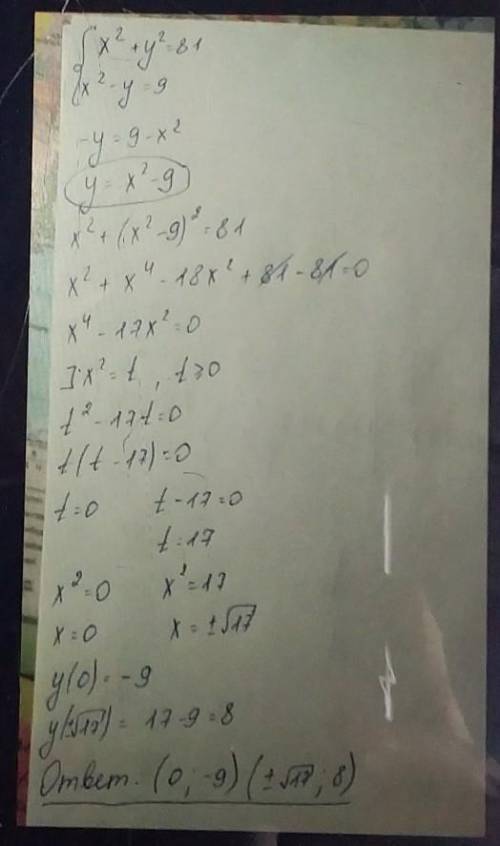 { x² + y² = 81
x² - y = 9
-y = 9 - x²
y = x² - 9
x² + (x² - 9)² = 81
x² + x⁴ - 18x² + 81 - 81 = 0
x⁴ - 17x² = 0
]x² = t, t ≥ 0
t² - 17t = 0
t(t - 17) = 0
t = 0 t - 17 = 0
t = 17
x² = 0 x² = 17
x = 0 x = ±√17
y(0) = -9
y(±√17) = 17 - 9 = 8
Ответ. (0; -9) (±√17; 8)